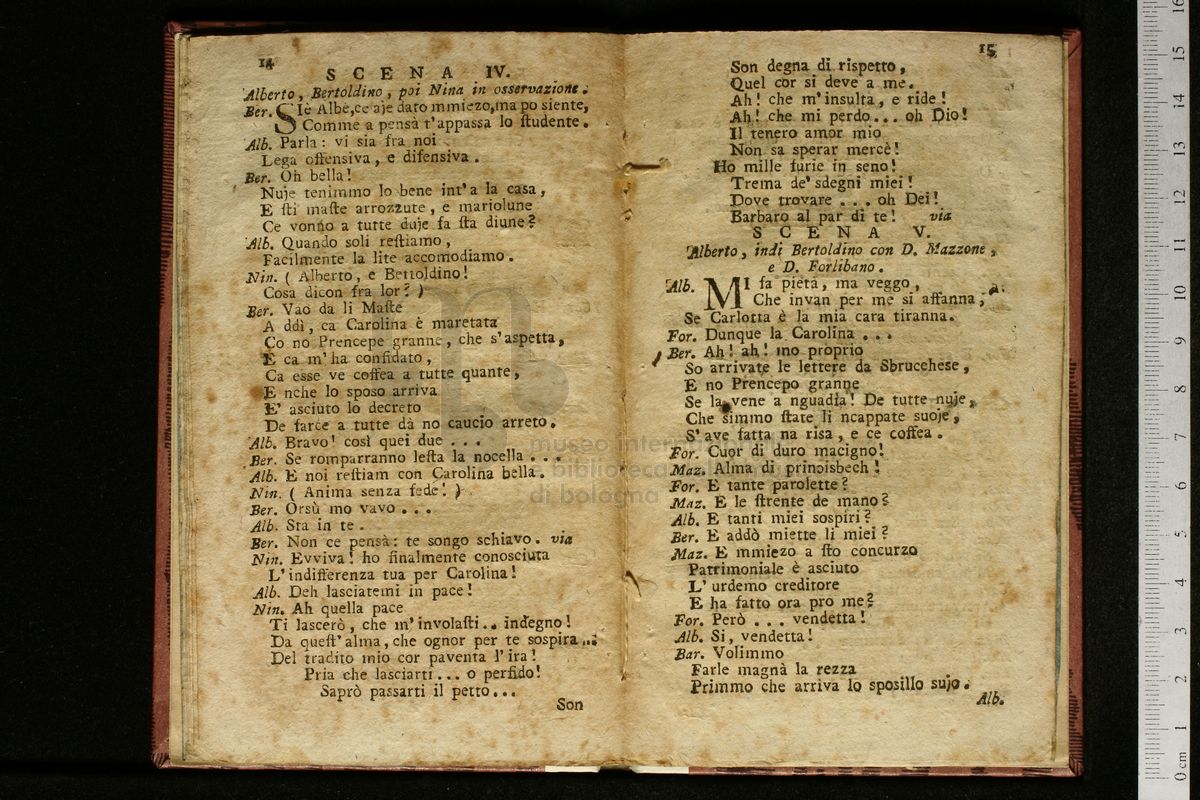 14
SCENA IV.
Alberto, Bertoldino, poi Nina in osservazione.
Ber. Siè Albè, ce aje dato mmiezo, ma po siente,
Comme a pensà t'appassa lo ſtudente.
Alb. Parla: vi sia fra noi
Lega offensiva, e difensiva.
Ber. Oh bella!
Nuje tenimmo lo bene int'a la casa,
E ſti maſte arrozzute, e mariolune
Ce vonno a tutte duje fa ſta diune?
Alb. Quando soli reſtiamo,
Facilmente la lite accomodiamo.
Nin. ( Alberto, e Bertoldino!
Cosa dicon fra lor? )
Ber. Vao da li Maſte
A ddì, ca Carolina è maretata
Co no Prencepe granne, che s'aspetta,
E ca m'ha confidato,
Ca esse ve coffea a tutte quante,
E nche lo sposo arriva
E' asciuto lo decreto
De farce a tutte dà no caucio arreto.
Alb. Bravo! così quei due . . .
Ber. Se romparranno leſta la nocella . . .
Alb. E noi reſtiam con Carolina bella.
Nin. ( Anima senza fede! )
Ber. Orsù mo vavo . . .
Alb. Sta in te.
Ber. Non ce pensà: te songo schiavo. via
Nin. Evviva! ho finalmente conosciuta
L'indifferenza tua per Carolina!
Alb. Deh lasciatemi in pace!
Nin. Ah quella pace
Ti lascerò, che m'involaſti.. indegno!
Da queſt'alma, che ognor per te sospira...
Del tradito mio cor paventa l'ira!
Pria che lasciarti... o perfido!
Saprò passarti il petto...
Son
15
Son degna di rispetto,
Quel cor si deve a me.
Ah! che m'insulta, e ride!
Ah! che mi perdo... oh Dio!
Il tenero amor mio
Non sa sperar mercè!
Ho mille furie in seno!
Trema de' sdegni miei!
Dove trovare . . . oh Dei!
Barbaro al par di te! via
SCENA V.
Alberto, indi Bertoldino con D. Mazzone,
e D. Forlibano.
Alb. MI fa pietà, ma veggo,
Che invan per me si affanna,
Se Carlotta è la mia cara tiranna.
For. Dunque la Carolina . . .
Ber. Ah! ah! mo proprio
So arrivate le lettere da Sbrucchese,
E no Prencepo granne
Se la vene a nguadia! De tutte nuje,
Che simmo ſtate li ncappate suoje,
S'ave fatta na risa, e ce coffea.
For. Cuor di duro macigno!
Maz. Alma di prinoisbech!
For. E tante parolette?
Maz. E le ſtrente de mano?
Alb. E tanti miei sospiri?
Ber. E addò miette li miei?
Maz. E mmiezo a ſto concurzo
Patrimoniale è asciuto
L'urdemo creditore
E ha fatto ora pro me?
For. Però . . . vendetta!
Alb. Si, vendetta!
Bar. Volimmo
Farle magnà la rezza
Primmo che arriva lo sposillo sujo.
Alb.